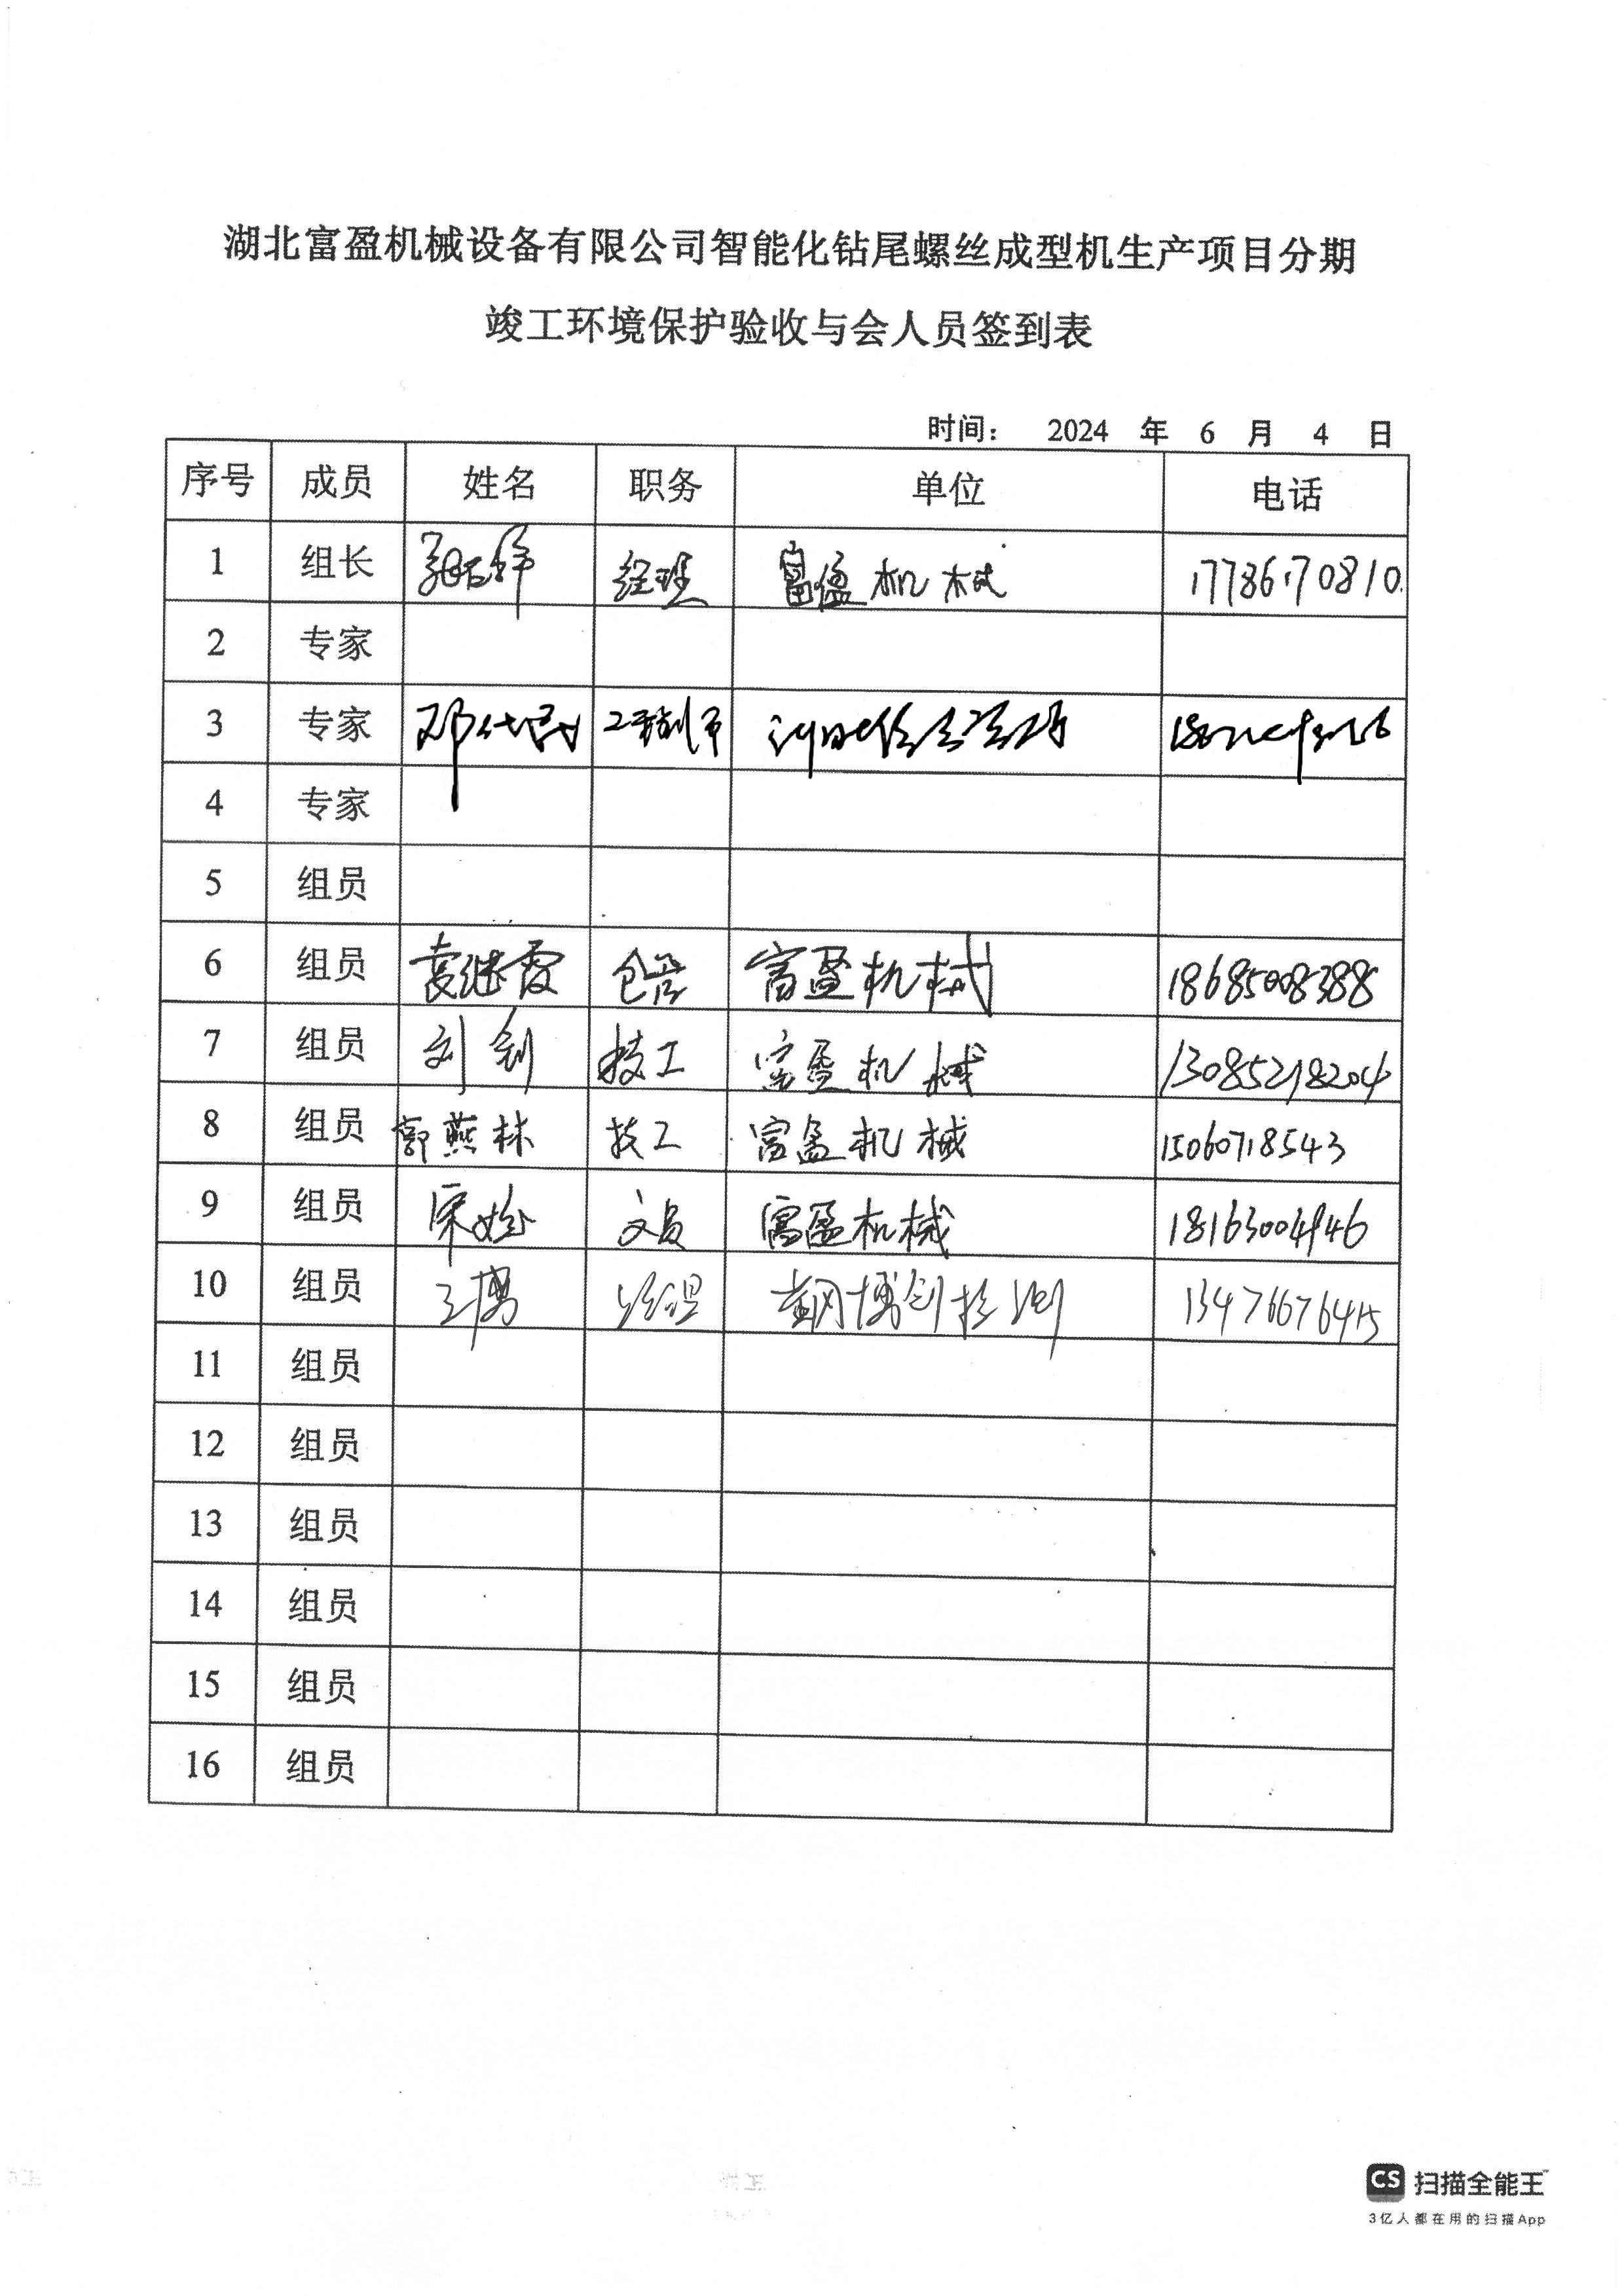 湖北富盈机械设备有限公司智能化钻尾螺丝成型机生产项目分期
竣工环境保护验收与会人员签到表
时间： 2024 年 6 月 4 日
序号 成员 姓名 职务 单位 电话
1 组长 经理 富盈机械 17786170810
2 专家
3 专家
4 专家
5 组员
6 组员 袁继霞 富盈机械 18685008388
7 组员 刘剑 技工 富盈机械 13085218204
8 组员 郭燕林 技工 富盈机械 15060718543
9 组员 文员 富盈机械 18163004946
10 组员 王博 经理 黄冈博创检测 13476676415
11 组员
12 组员
13 组员
14 组员
15 组员
16 组员
CS 扫描全能王
3亿人都在用的扫描App